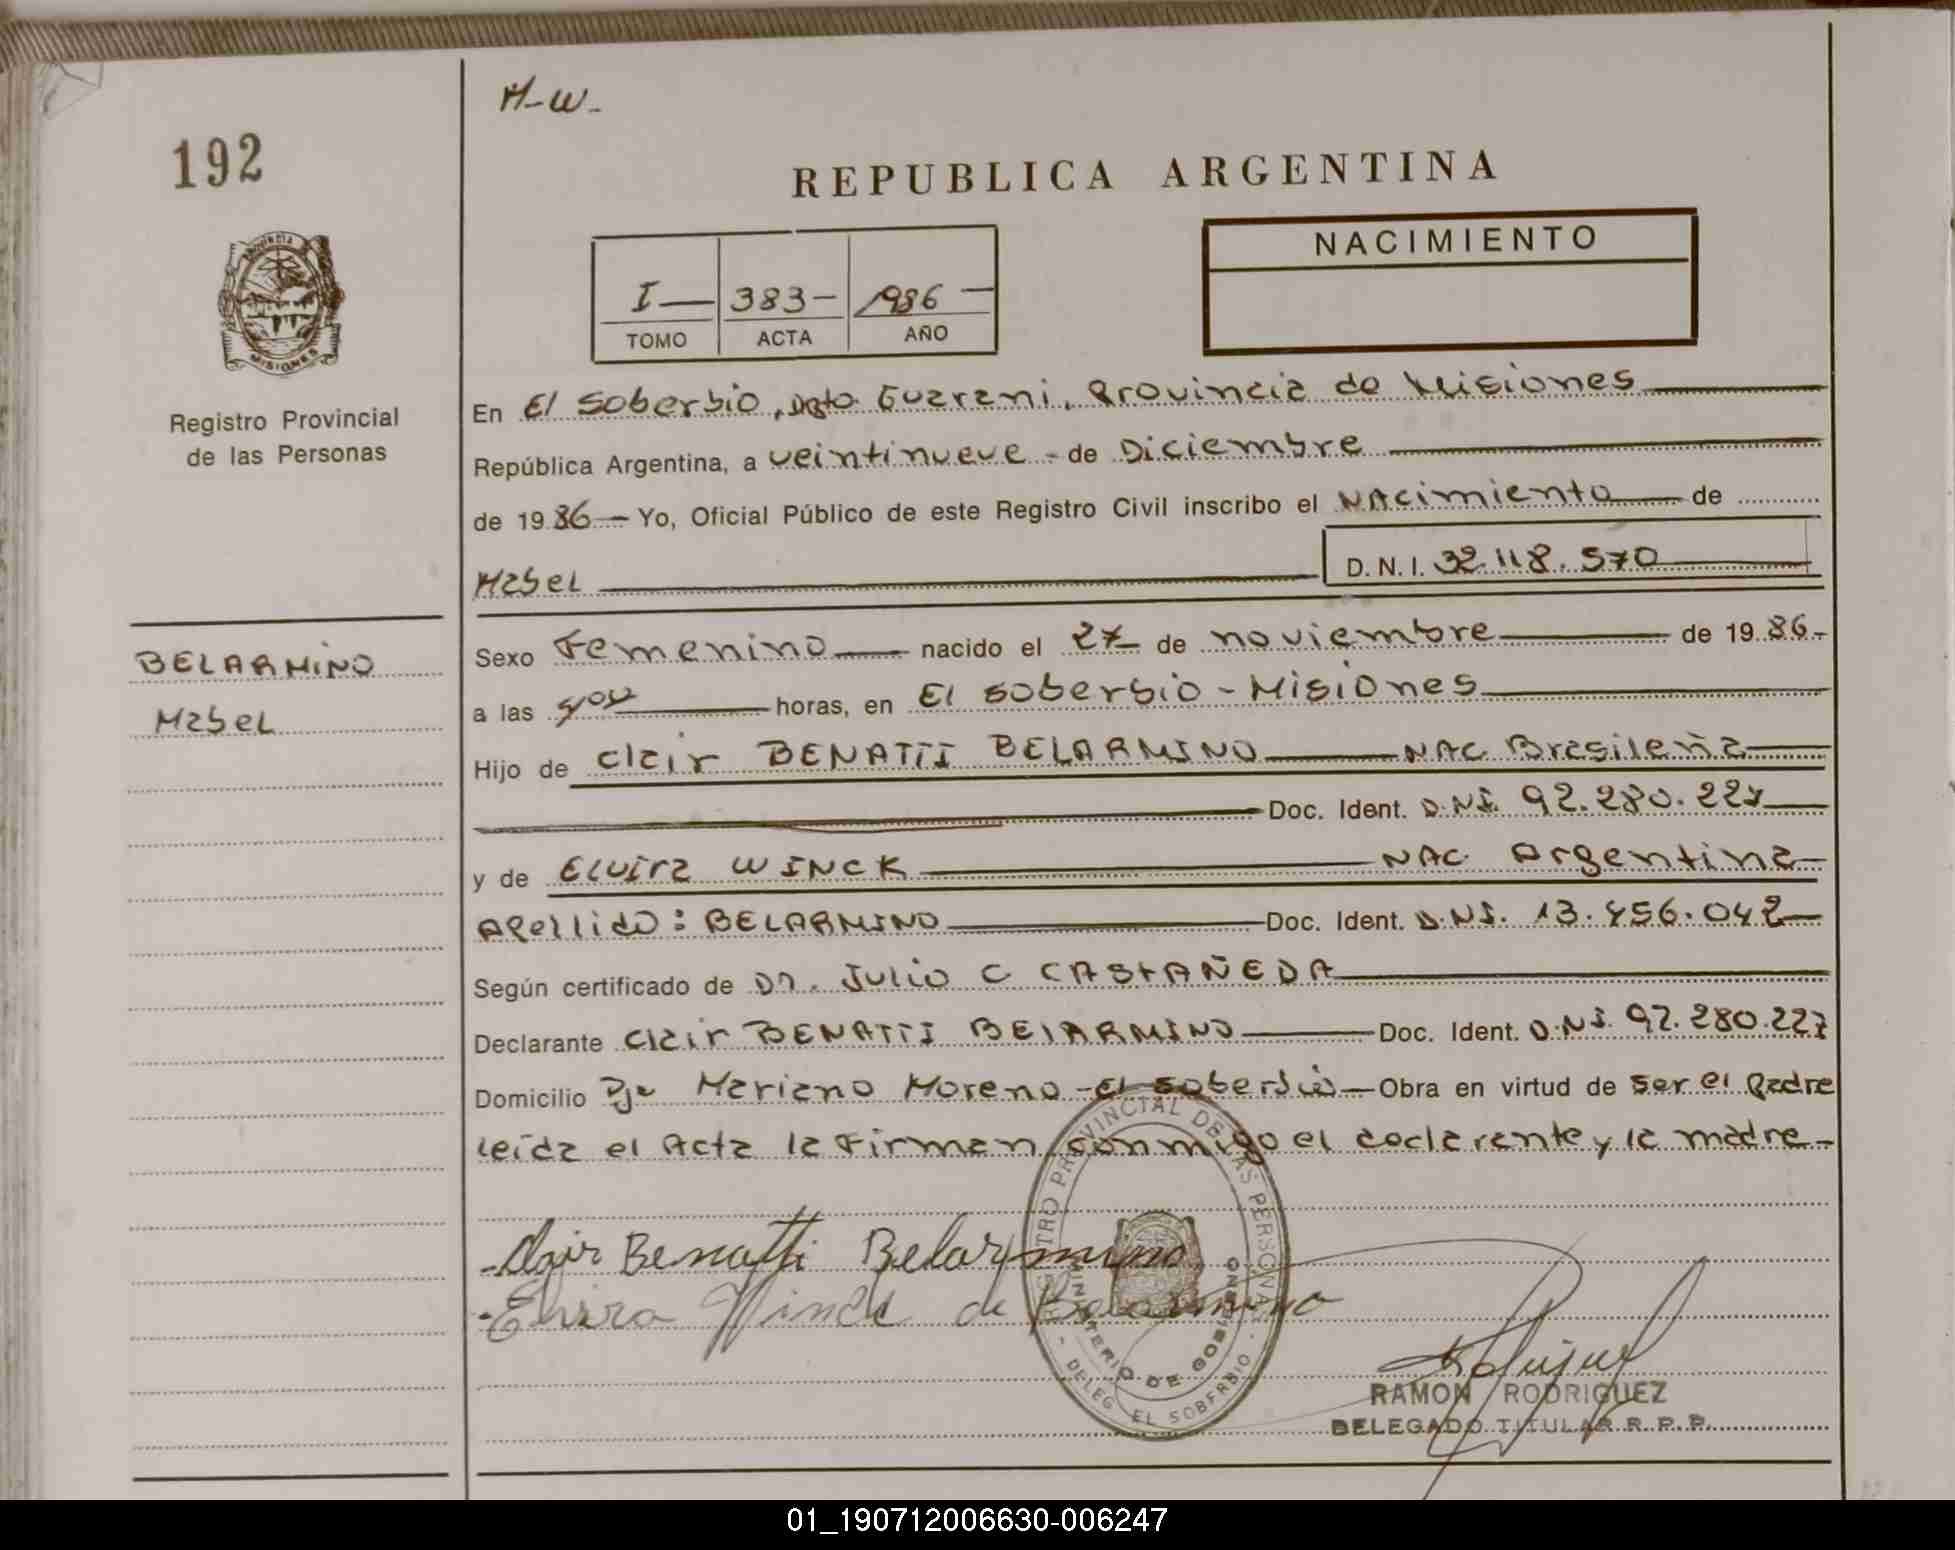 H-W-
192
REPUBLICA ARGENTINA
NACIMIENTO
I 383 1986
TOMO ACTA AÑO
PROVINCIA MISIONES
Registro Provincial
de las Personas
En El Soberbio, Dpto Guarani, Provincia de Misiones
República Argentina, a veintinueve - de Diciembre
de 1986 Yo, Oficial Público de este Registro Civil inscribo el NAcimiento de
Mabel D. N. I. 32.118.570
BELARMINO
Mabel
Sexo Femenino nacido el 27 de noviembre de 1986-
a las horas, en El Soberbio - Misiones
Hijo de Clair BENATTI BELARMINO NAC Brasileña
Doc. Ident. D.NI. 92.280.227
y de Elvira WINCK NAC Argentina
Apellido: BELARMINO Doc. Ident. D.NI. 13.856.042
Según certificado de Dr. Julio C CASTAÑEDA
Declarante Clair BENATTI BELARMINO Doc. Ident. D.NI. 92.280.227
Domicilio Pje Mariano Moreno - El Soberbio Obra en virtud de ser el padre
Leída el Acta la Firman conmigo el declarante y la madre-
REGISTRO PROVINCIAL DE LAS PERSONAS
MINISTERIO DE GOBIERNO
- DELEG. EL SOBERBIO -
Clair Benatti Belarmino
Elvira Winck de Belarmino
RAMON RODRIGUEZ
DELEGADO TITULAR R.P.P.
01_190712006630-006247